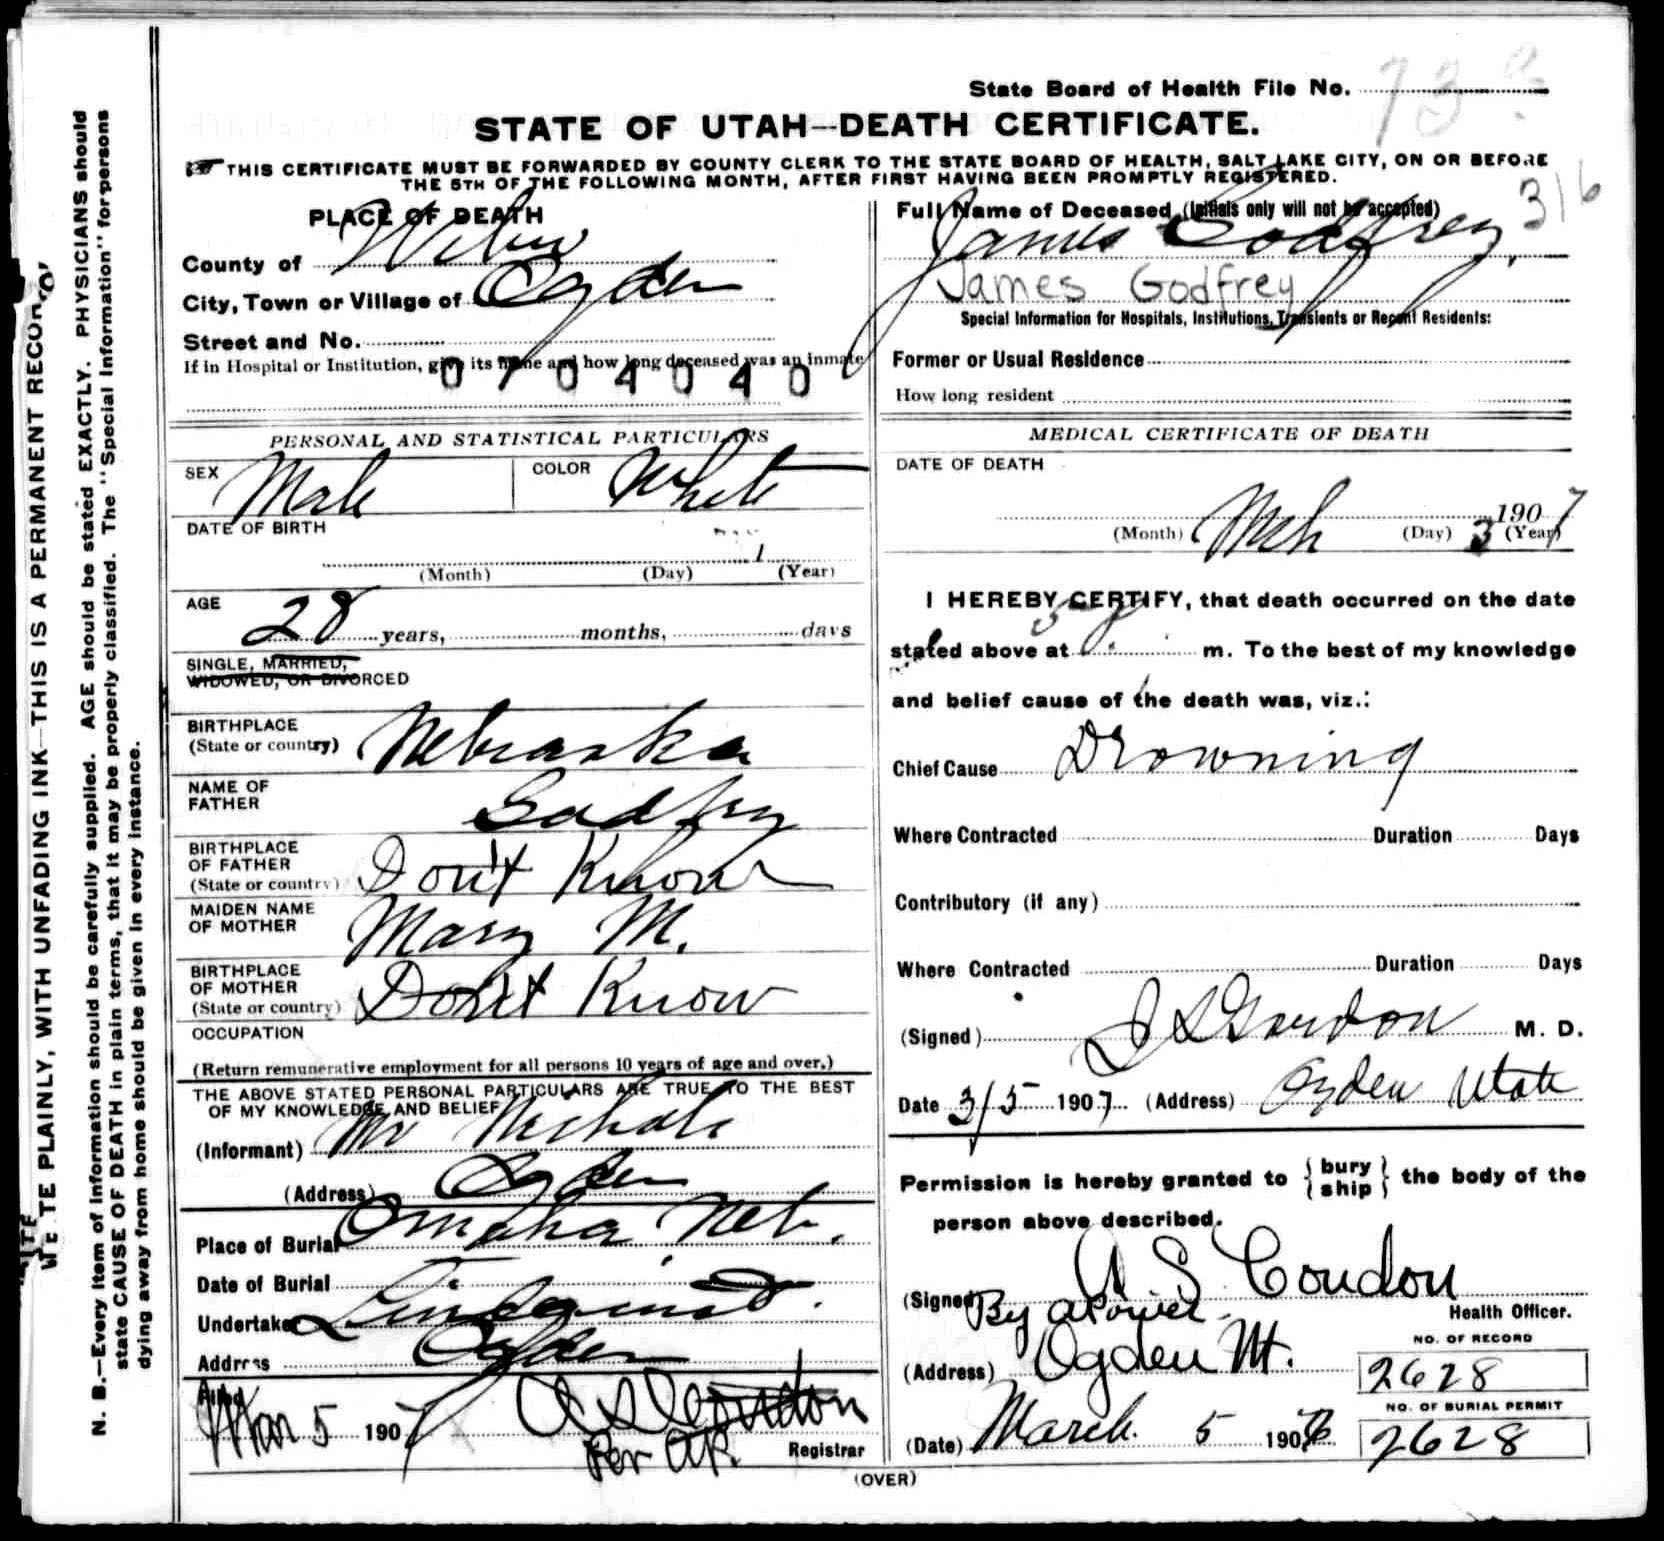 State Board of Health File No.
STATE OF UTAH—DEATH CERTIFICATE.
THIS CERTIFICATE MUST BE FORWARDED BY COUNTY CLERK TO THE STATE BOARD OF HEALTH, SALT LAKE CITY, ON OR BEFORE
THE 5TH OF THE FOLLOWING MONTH, AFTER FIRST HAVING BEEN PROMPTLY REGISTERED.
316
PLACE OF DEATH
County of Weber
City, Town or Village of Ogden
Street and No.
If in Hospital or Institution, give its name and how long deceased was an inmate
0704040
Full Name of Deceased (Initials only will not be accepted)
James Godfrey
James Godfrey
Special Information for Hospitals, Institutions, Transients or Recent Residents:
Former or Usual Residence
How long resident
PERSONAL AND STATISTICAL PARTICULARS
SEX Male COLOR White
DATE OF BIRTH
1
(Month) (Day) (Year)
AGE 28 years, months, days
SINGLE, MARRIED,
WIDOWED, OR DIVORCED
BIRTHPLACE
(State or country) Nebraska
NAME OF
FATHER Godfrey
BIRTHPLACE
OF FATHER
(State or country) Don't Know
MAIDEN NAME
OF MOTHER Mary M.
BIRTHPLACE
OF MOTHER
(State or country) Don't Know
OCCUPATION
(Return remunerative employment for all persons 10 years of age and over.)
THE ABOVE STATED PERSONAL PARTICULARS ARE TRUE TO THE BEST
OF MY KNOWLEDGE AND BELIEF
(Informant) Mr Nichols
(Address) Ogden
Place of Burial Omaha, Neb.
Date of Burial
Undertaker Lindquist
Address Ogden
Filed
Mar 5 1907 A S Condon
Per AP. Registrar
MEDICAL CERTIFICATE OF DEATH
DATE OF DEATH
1907
(Month) Mch (Day) 3 (Year)
I HEREBY CERTIFY, that death occurred on the date
stated above at 5 P. m. To the best of my knowledge
and belief cause of the death was, viz.:
Chief Cause Drowning
Where Contracted Duration Days
Contributory (if any)
Where Contracted Duration Days
(Signed) Gordon M. D.
Date 3/5 1907 (Address) Ogden Utah
Permission is hereby granted to {bury ship} the body of the
person above described.
(Signed) A S Condon
By A Power Health Officer.
(Address) Ogden Ut.
NO. OF RECORD
2628
NO. OF BURIAL PERMIT
2628
(Date) March 5 190
(OVER)
WRITE PLAINLY, WITH UNFADING INK—THIS IS A PERMANENT RECORD
N. B.—Every item of information should be carefully supplied. AGE should be stated EXACTLY. PHYSICIANS should
state CAUSE OF DEATH in plain terms, that it may be properly classified. The "Special Information" for persons
dying away from home should be given in every instance.